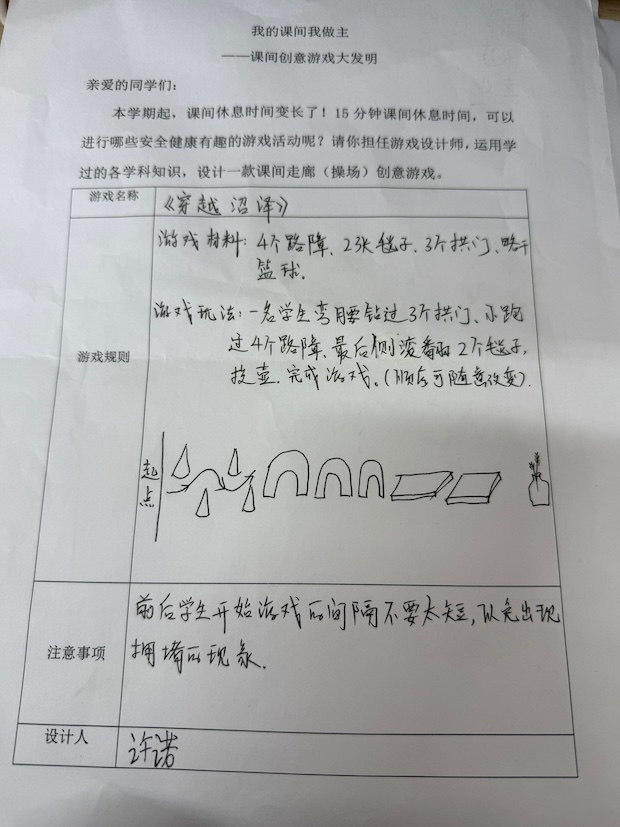 我的课间我做主
——课间创意游戏大发明
亲爱的同学们：
本学期起，课间休息时间变长了！15 分钟课间休息时间，可以
进行哪些安全健康有趣的游戏活动呢？请你担任游戏设计师，运用学
过的各学科知识，设计一款课间走廊（操场）创意游戏。
游戏名称
《穿越沼泽》
游戏规则
游戏材料：4个路障、2张毯子、3个拱门、略干
篮球.
游戏玩法：一名学生弯腰钻过3个拱门、小跑
过4个路障、最后侧滚翻 2个毯子，
投壶.完成游戏。(顺序可随意改变).
起点
注意事项
前后学生开始游戏的间隔不要太短，以免出现
拥堵的现象.
设计人
许诺